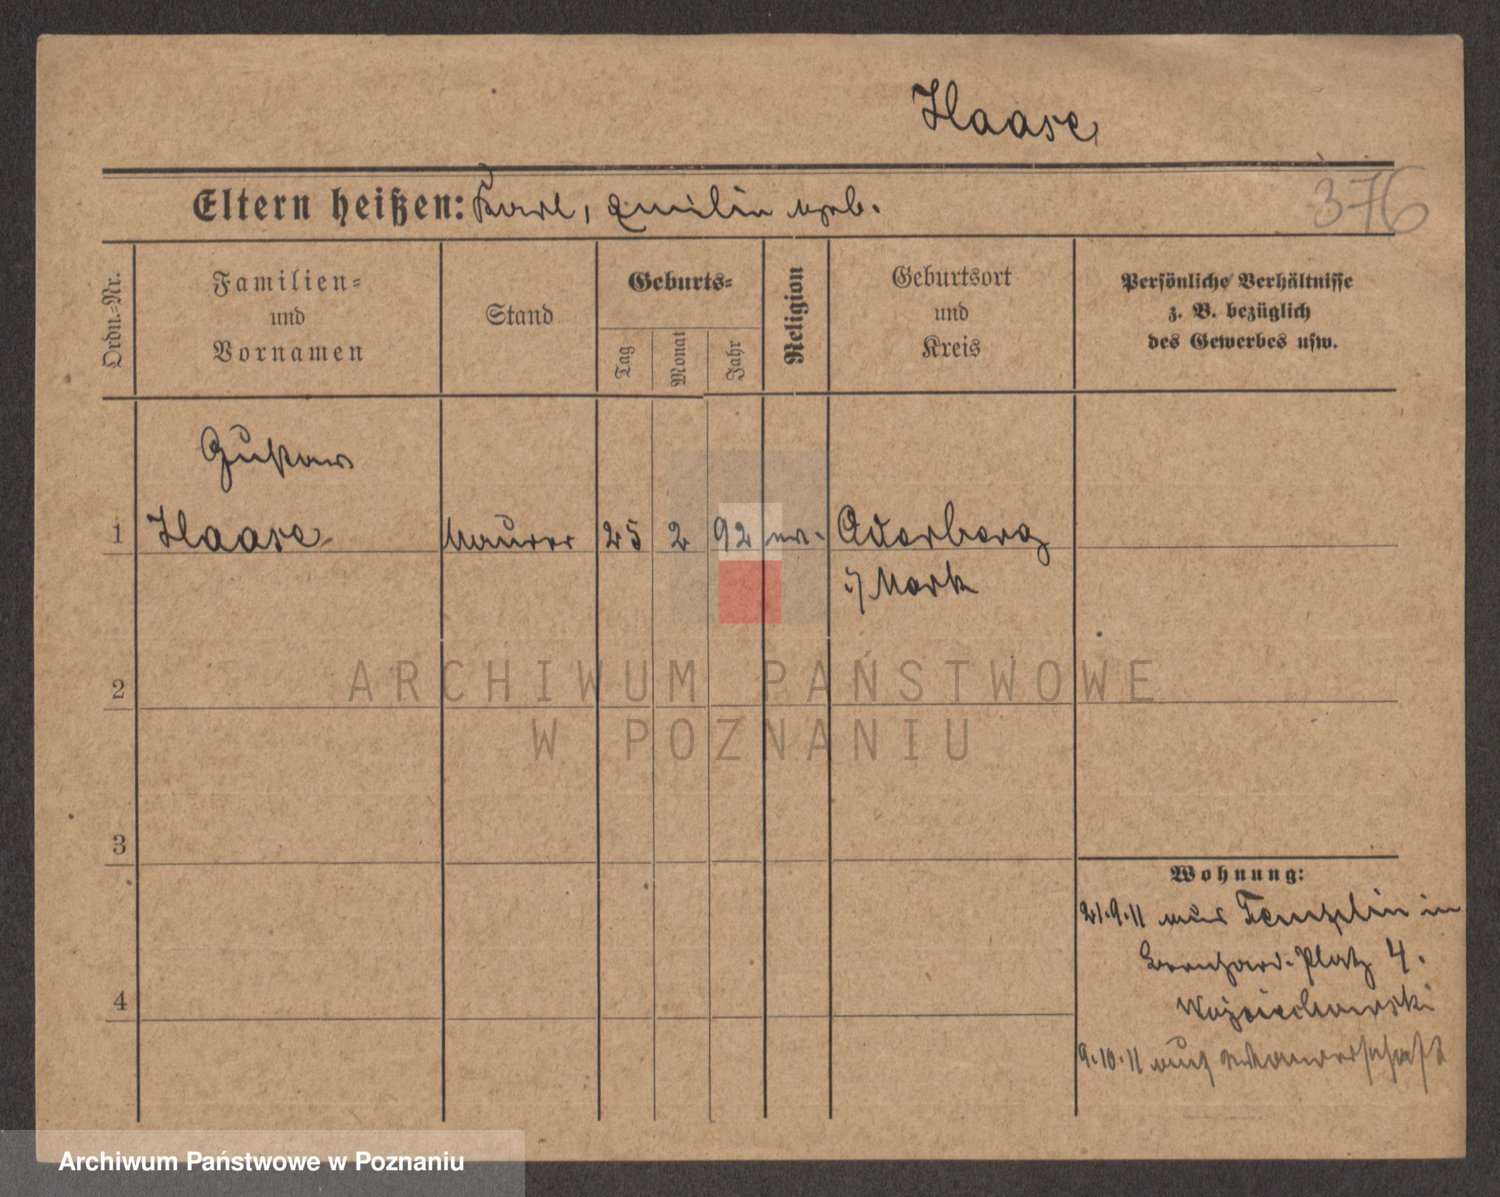 Haase
376
Eltern heißen: Karl, Emilie geb.
Ordn.-Nr.
Familien-
und
Vornamen
Stand
Geburts-
Tag
Monat
Jahr
Religion
Geburtsort
und
Kreis
Persönliche Verhältnisse
z. B. bezüglich
des Gewerbes usw.
Gustav
1 Haase Maurer 25 2 92 ev. Oderberg
i/ Mark
2
3
4
Wohnung:
21.9.11 aus Templin in
Bernhard-Platz 4.
Wojciechowski
9.10.11 auf Wanderschaft
ARCHIWUM PAŃSTWOWE
W POZNANIU
Archiwum Państwowe w Poznaniu